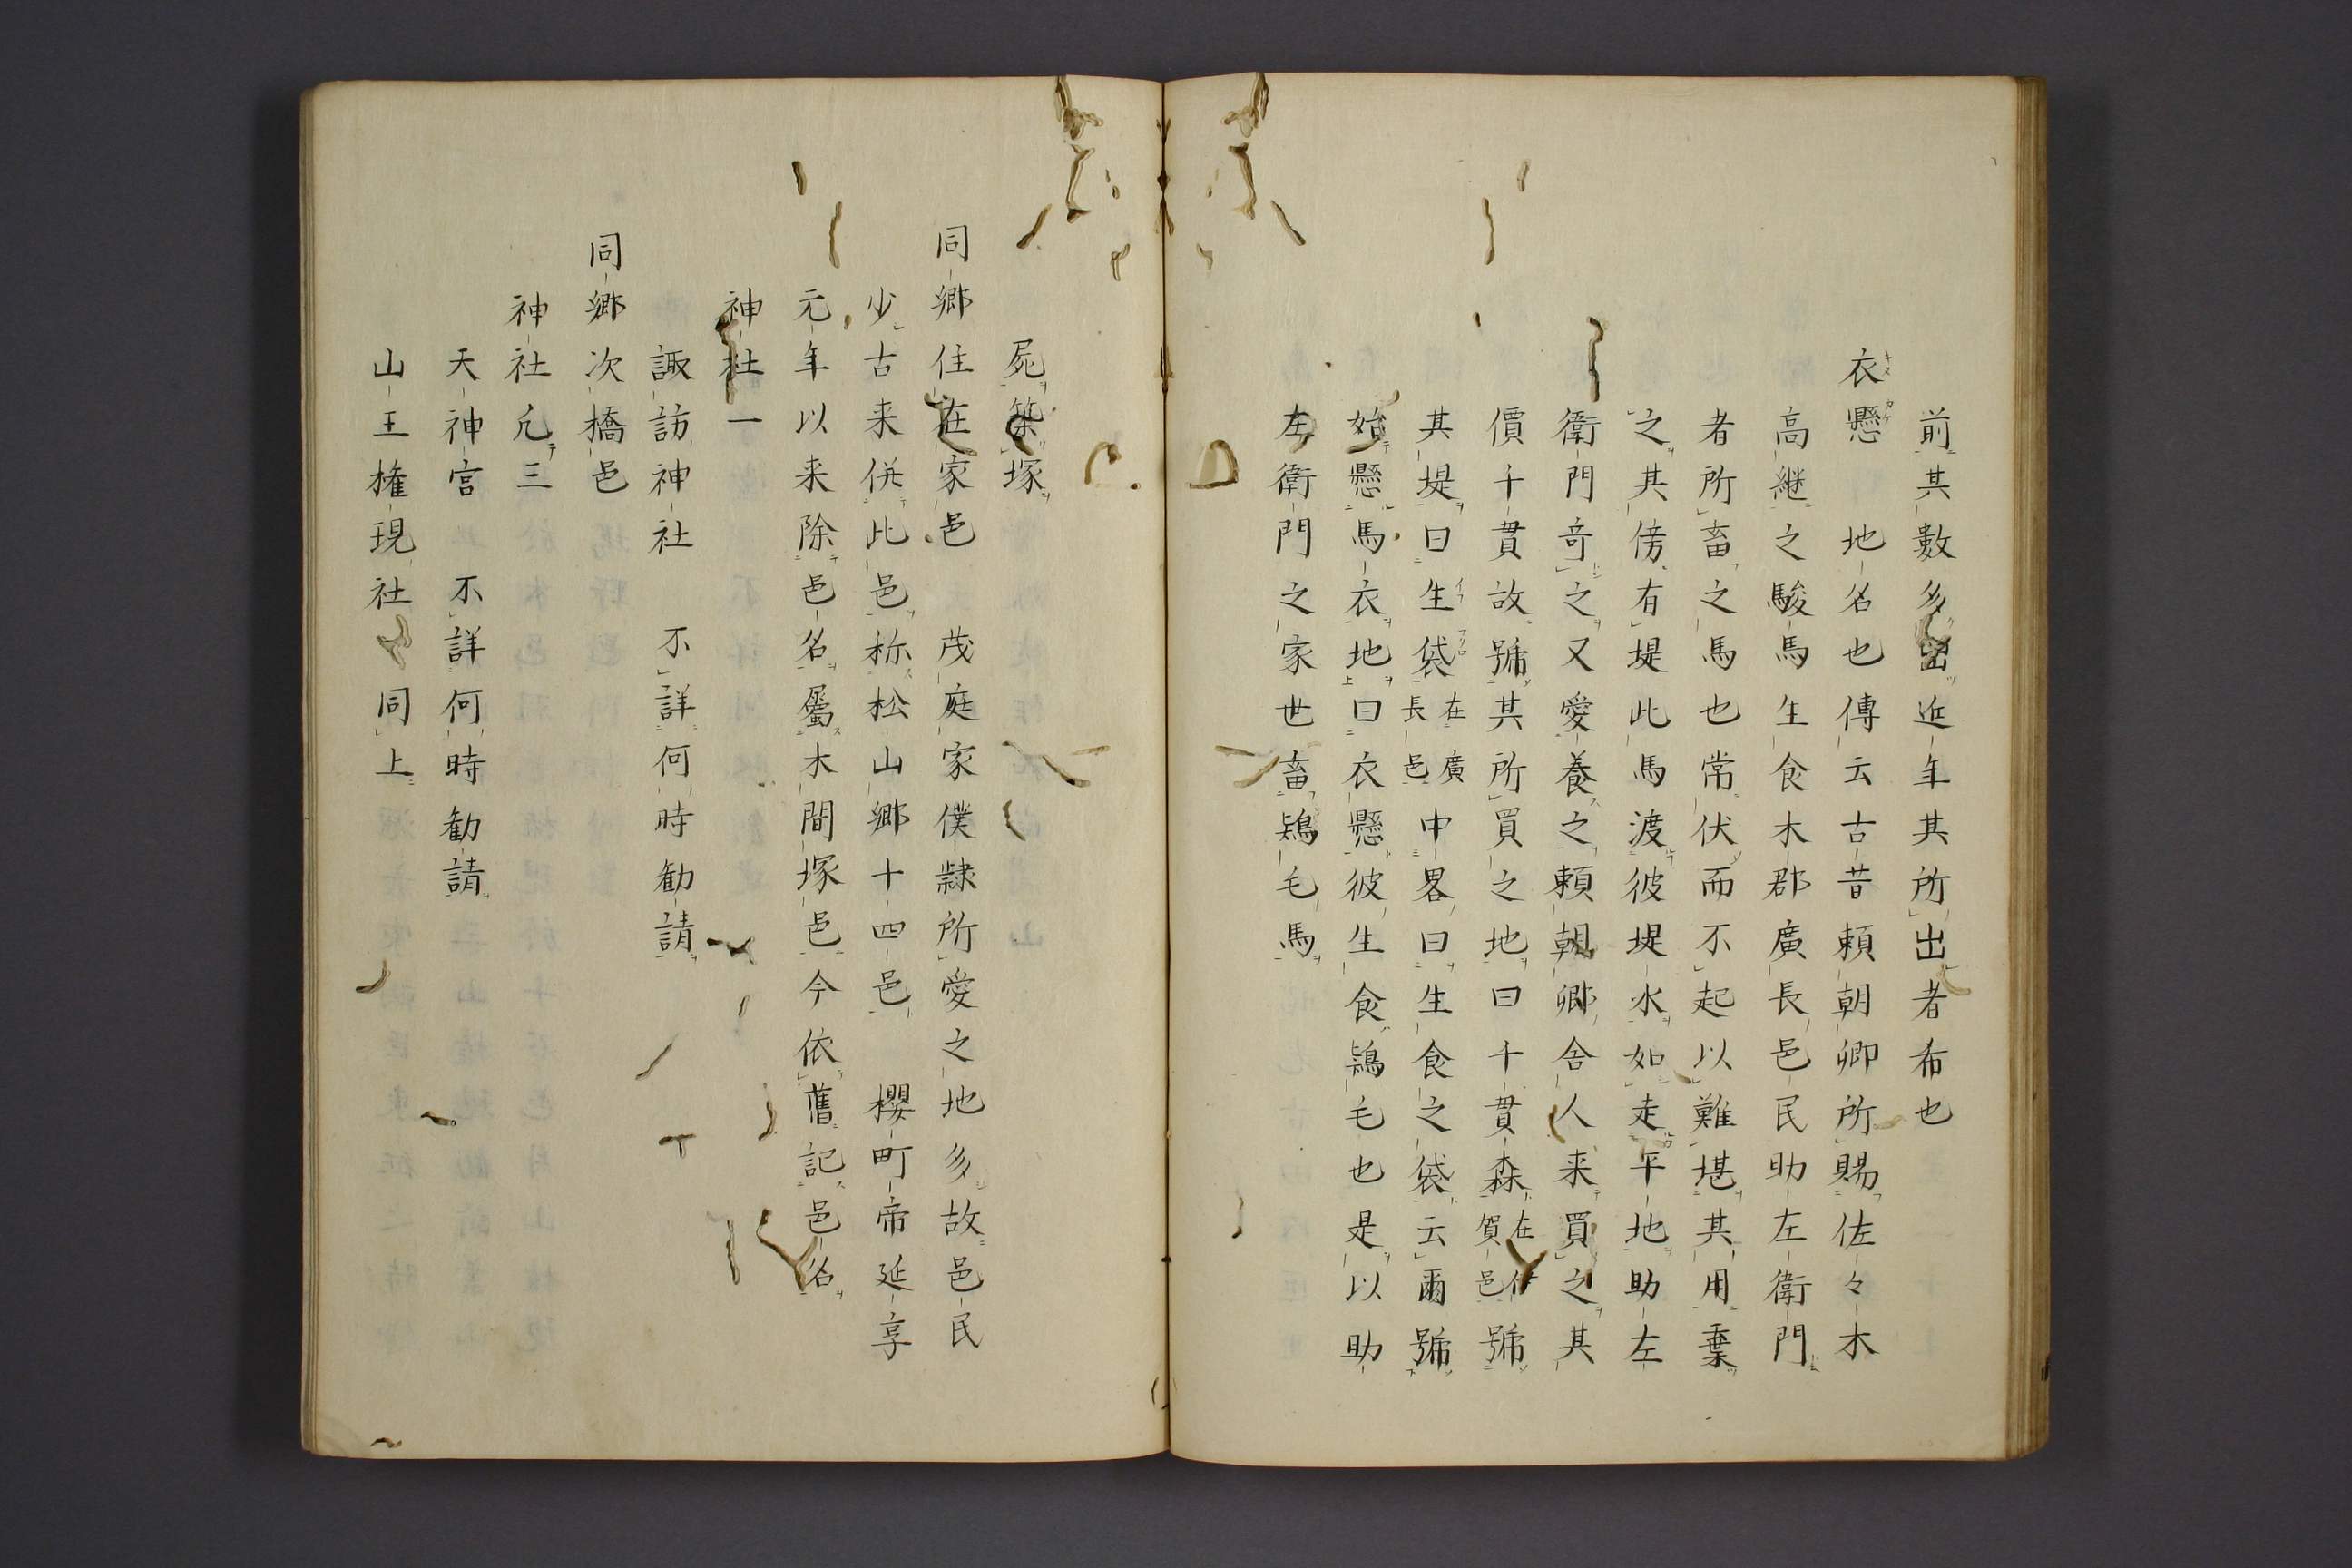 前其數多出近年其所出者希也
衣懸　地名也傳云古昔頼朝卿所賜佐々木
高継之駿馬生食木郡廣長邑民助左衛門
者所畜之馬也常伏而不起以難堪其用棄
之其傍有堤此馬渡彼堤水如走平地助左
衛門竒之又愛養之頼朝卿舎人来買之其
價千貫故號其所買之地曰千貫森在伊賀邑號
其堤曰生袋在廣長邑中畧曰生食之袋云爾號
始懸馬衣地曰衣懸彼生食鴾毛也是以助
左衛門之家世畜鴾毛馬
屍築塚
同郷住在家邑　茂庭家僕隷所愛之地多故邑民
少古来併此邑称松山郷十四邑　櫻町帝延享
元年以来除邑名屬木間塚邑今依舊記邑名
神社一
諏訪神社　不詳何時勧請
同郷次橋邑
神社凢三
天神宮　不詳何時勧請
山王権現社　同上